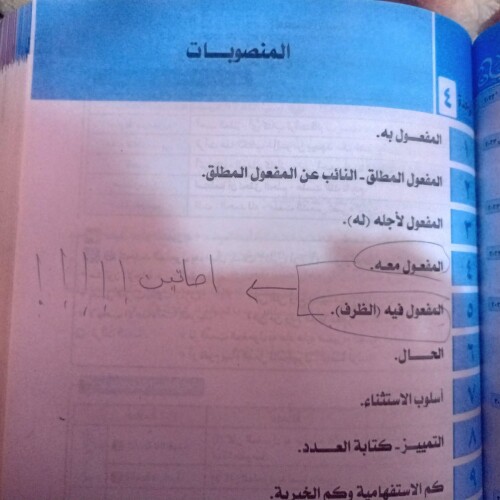 المنصوبات
٤
١ المفعول به.
٢ المفعول المطلق - النائب عن المفعول المطلق.
٣ المفعول لأجله (له).
٤ المفعول معه.
٥ المفعول فيه (الظرف).
٦ الحـال.
٧ أسلوب الاستثناء.
٨ التمييز - كتابة العـدد.
٩ كم الاستفهامية وكم الخبرية.